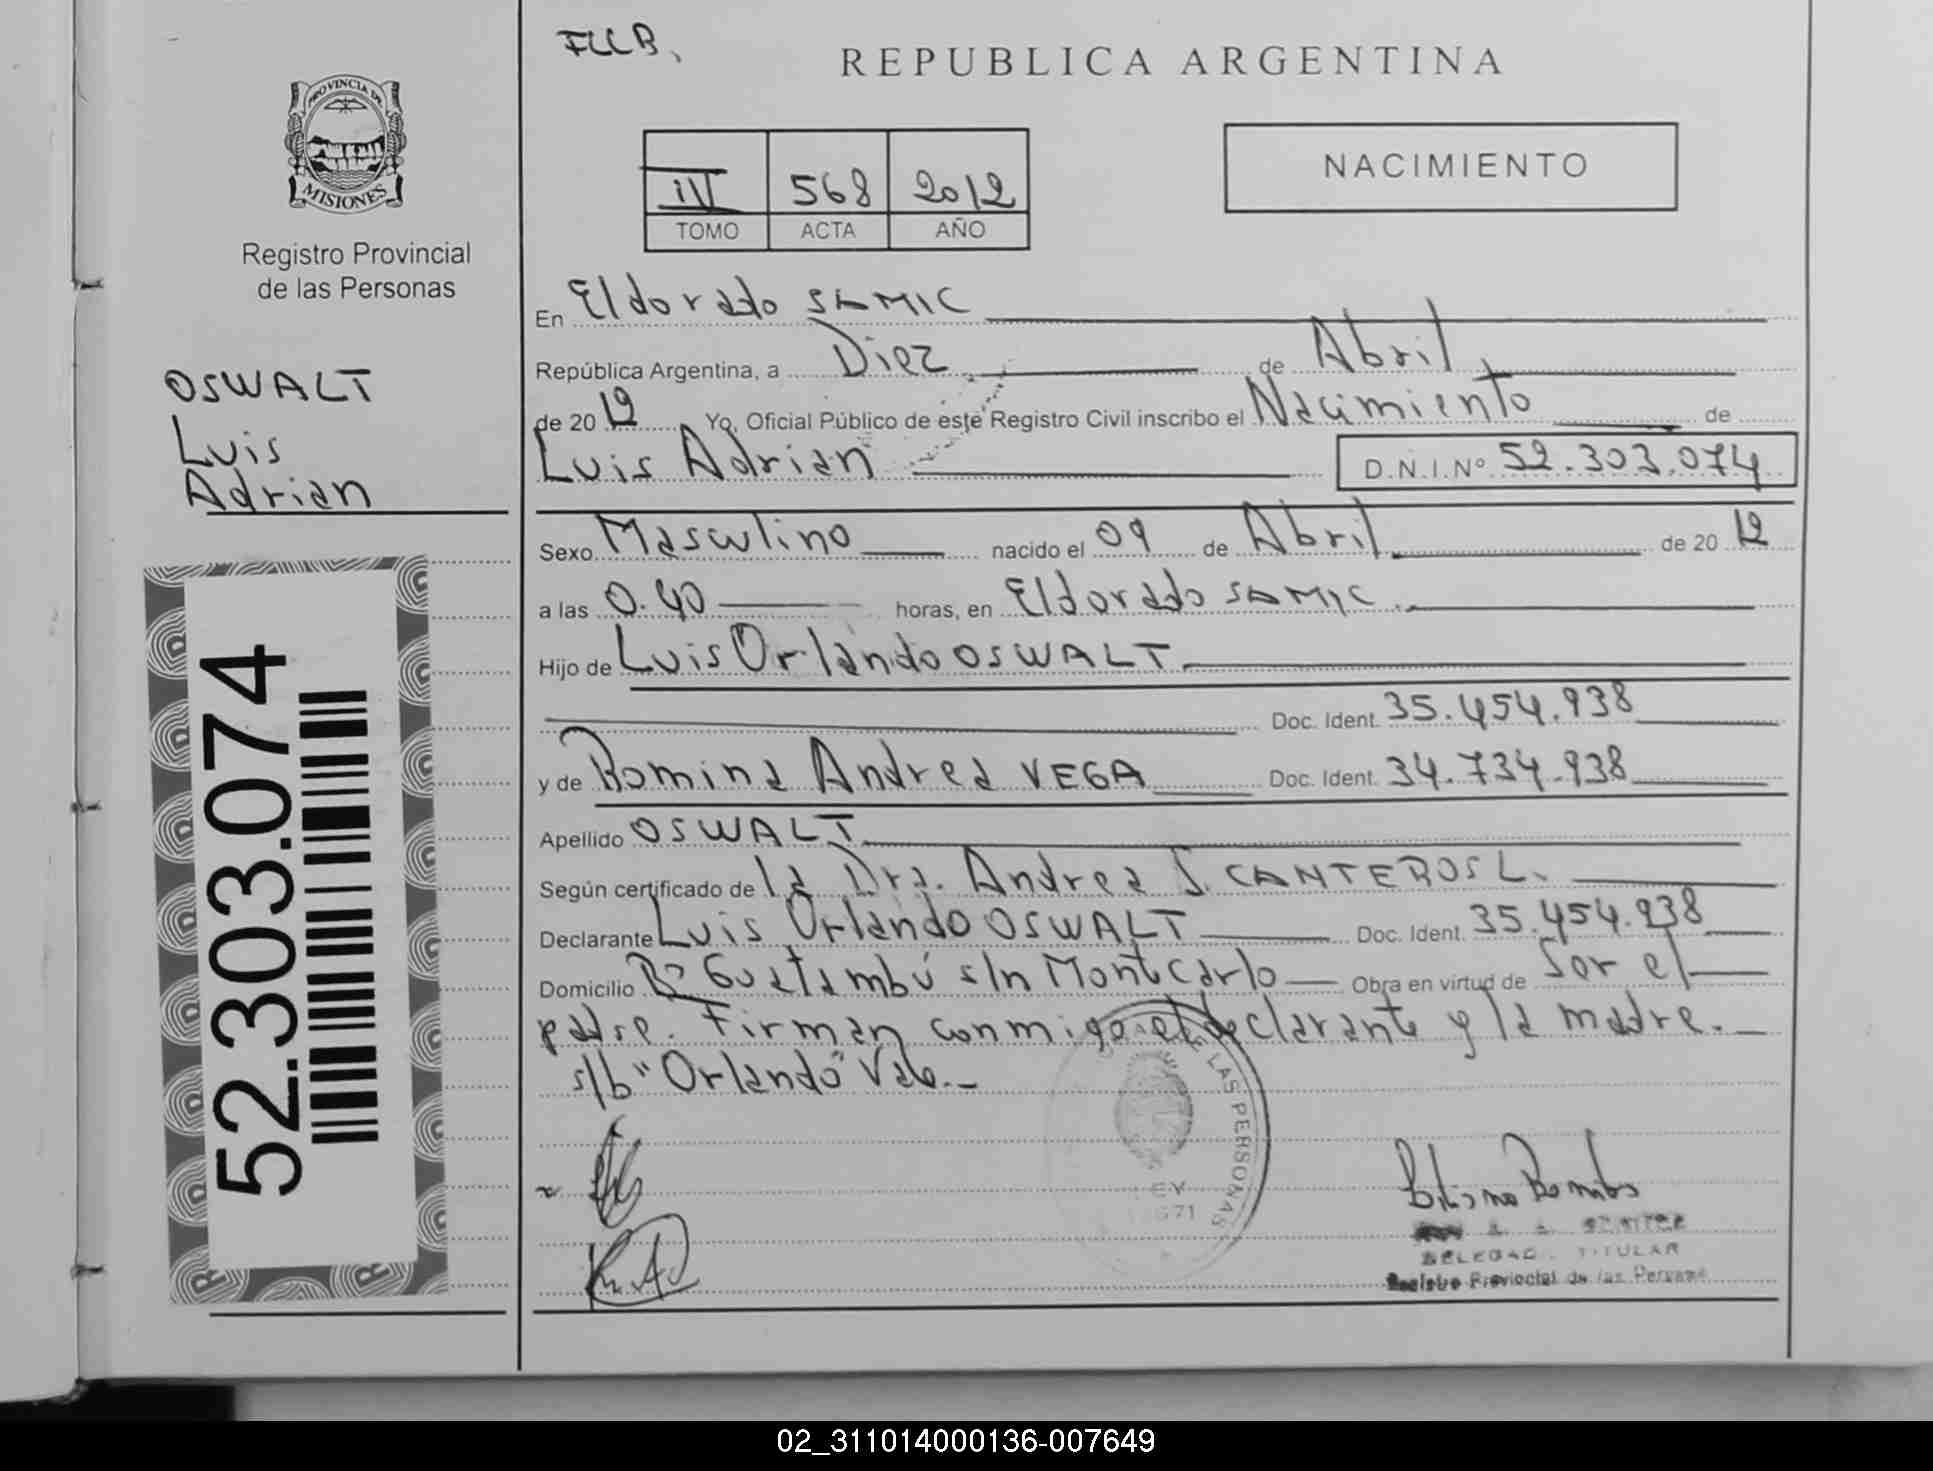 FLLB.
REPUBLICA ARGENTINA
PROVINCIA DE
MISIONES
Registro Provincial
de las Personas
III 568 2012
TOMO ACTA AÑO
NACIMIENTO
OSWALT
Luis
Adrian
52.303.074
En Eldorado SAMIC
República Argentina, a Diez de Abril
de 2012 Yo, Oficial Público de este Registro Civil inscribo el Nacimiento de
Luis Adrian D.N.I.Nº 52.303.074
Sexo Masculino nacido el 09 de Abril de 2012
a las 0.40 horas, en Eldorado SAMIC.
Hijo de Luis Orlando OSWALT
Doc. Ident. 35.454.938
y de Romina Andrea VEGA Doc. Ident. 34.734.938
Apellido OSWALT
Según certificado de la Dra. Andrea S. CANTEROS L.
Declarante Luis Orlando OSWALT Doc. Ident. 35.454.938
Domicilio Bº Guatambú s/n Montecarlo Obra en virtud de Ser el
padre. Firman conmigo el declarante y la madre.
s/b "Orlando" Vale.
LAS PERSONAS
LEY
671
DELEGAD. TITULAR
Registro Provincial de las Personas
02_311014000136-007649